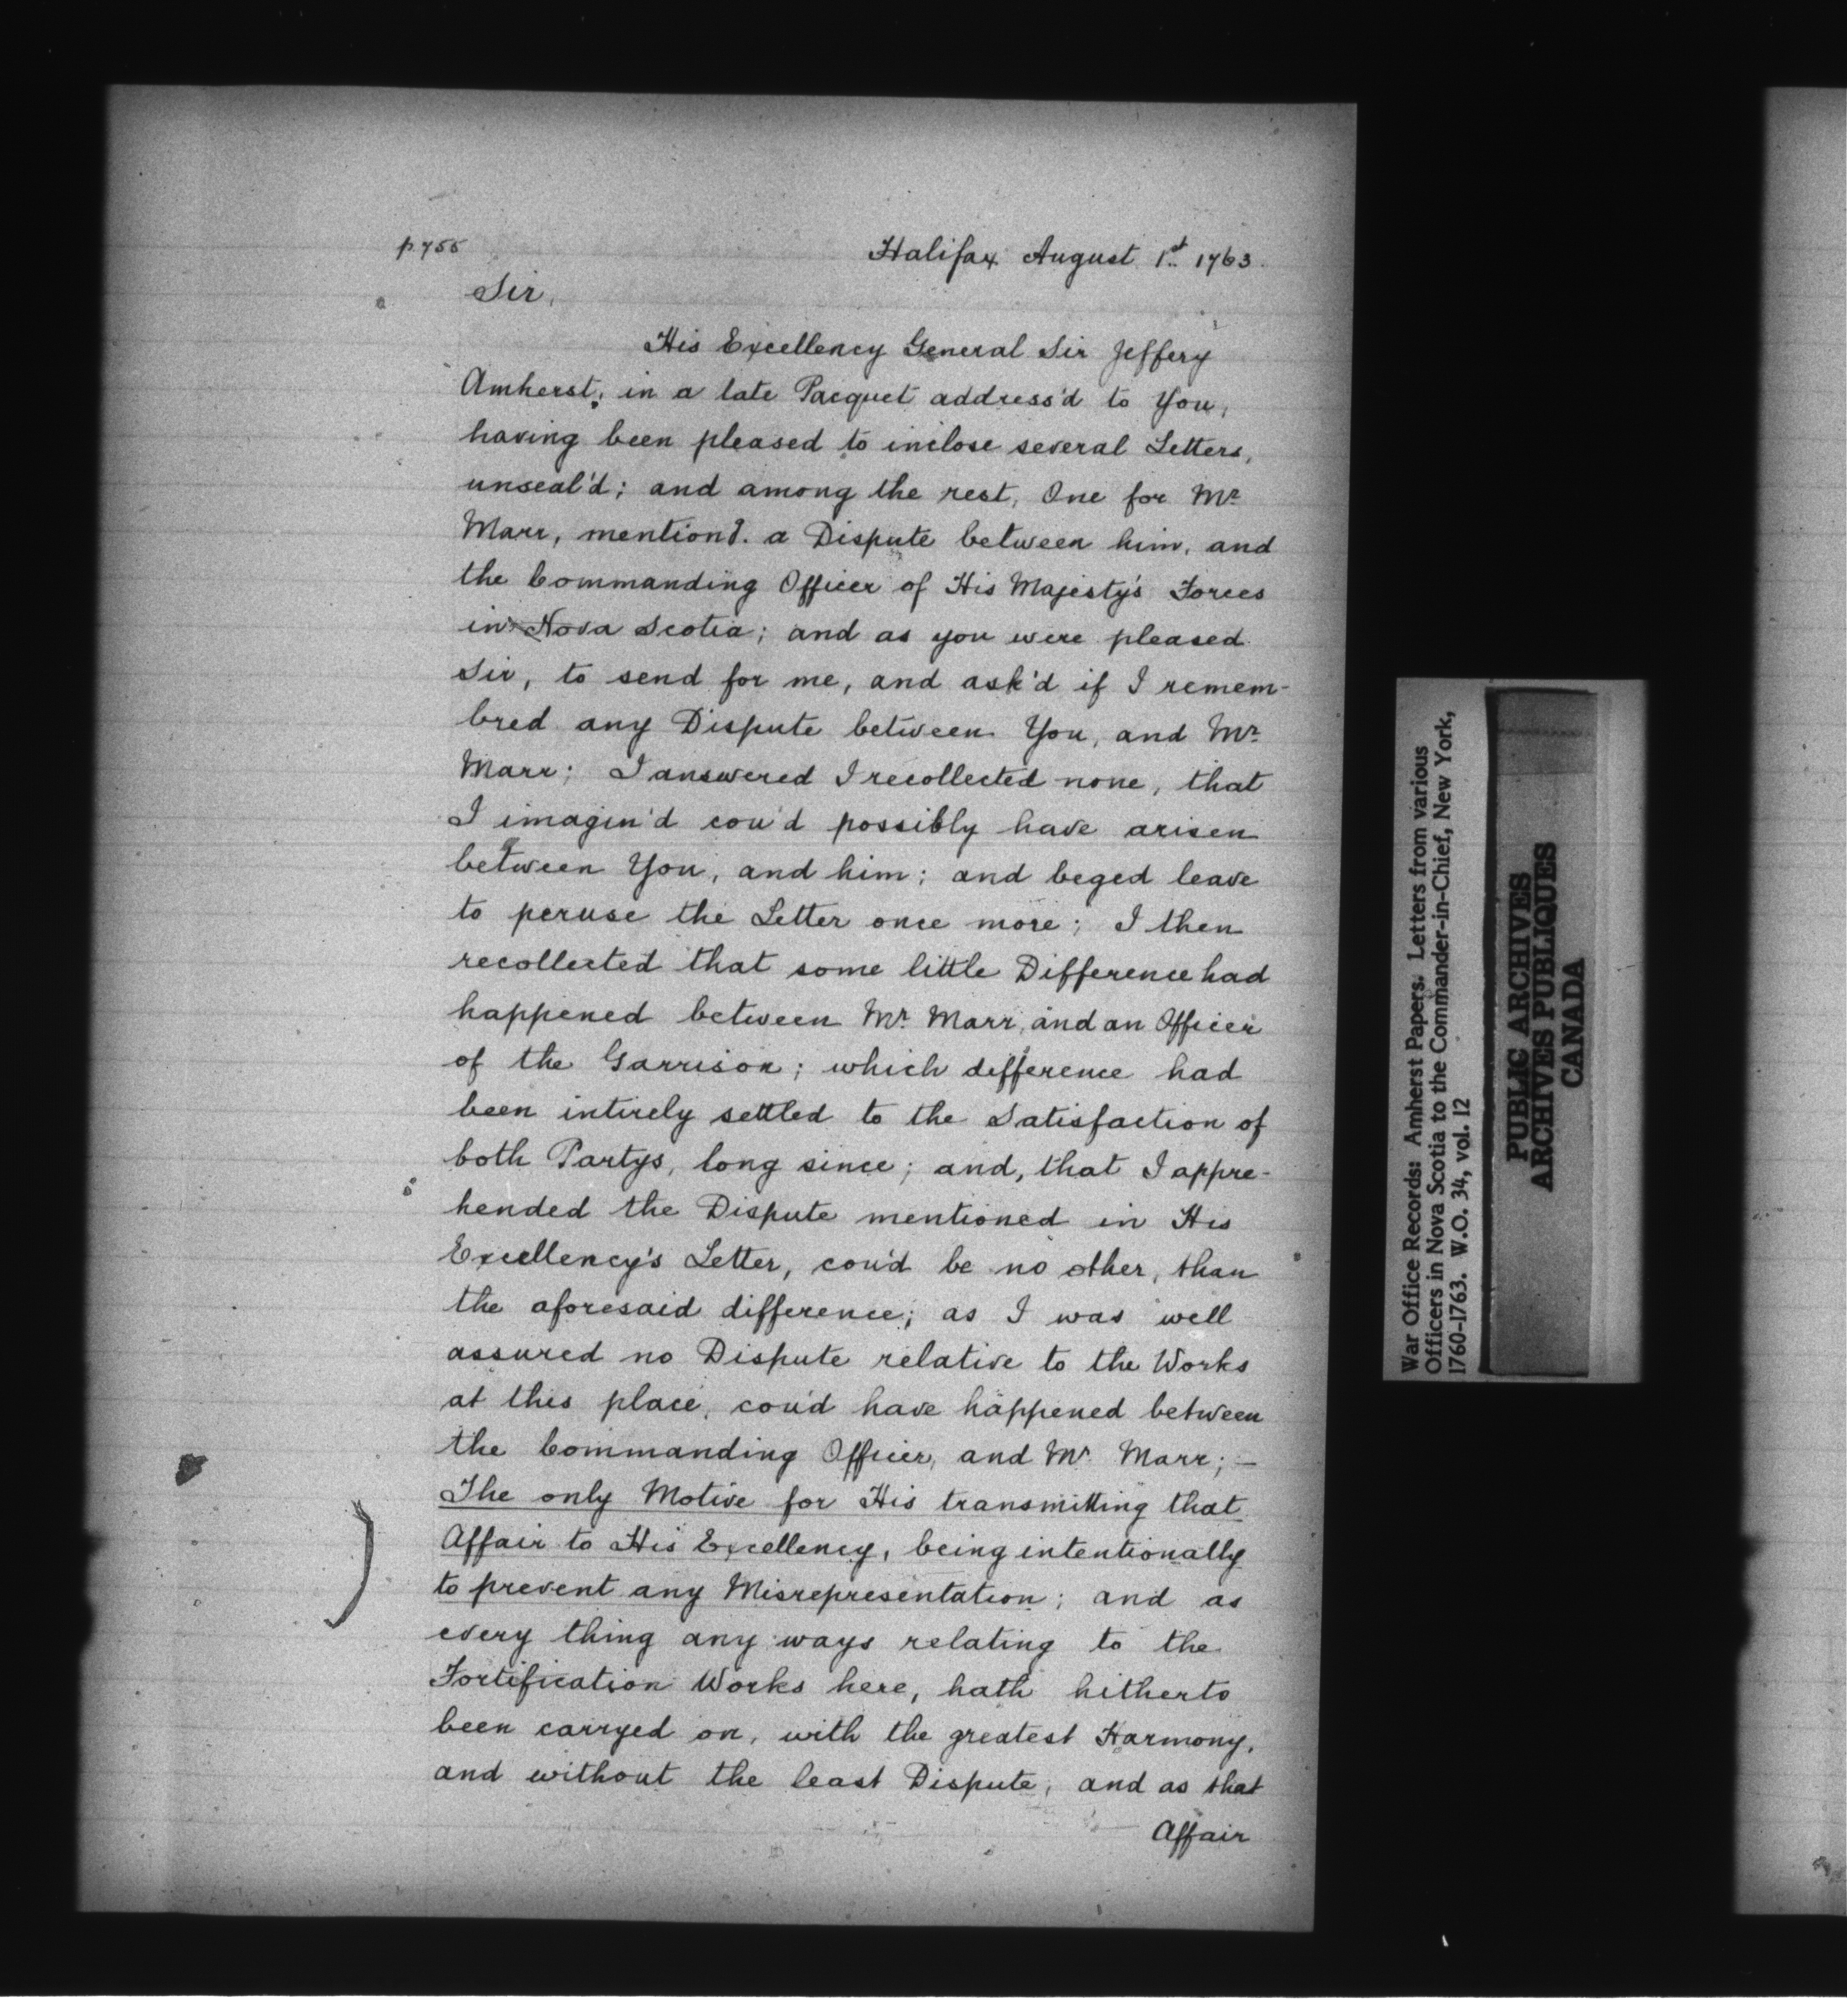 p. 755
Halifax August 1st 1763.
Sir,
His Excellency General Sir Jeffery
Amherst, in a late Pacquet address'd to You,
having been pleased to inclose several Letters,
unseal'd; and among the rest, One for Mr
Marr, mentiond. a Dispute between him, and
the Commanding Officer of His Majesty's Forces
in Nova Scotia; and as you were pleased
Sir, to send for me, and ask'd if I remem-
bred any Dispute between You, and Mr
Marr; I answered I recollected none, that
I imagin'd cou'd possibly have arisen
between You, and him; and beged leave
to peruse the Letter once more; I then
recollected that some little Difference had
happened between Mr Marr, and an Officer
of the Garrison; which difference had
been intirely settled to the Satisfaction of
both Partys, long since; and, that I appre-
hended the Dispute mentioned in His
Excellency's Letter, cou'd be no other, than
the aforesaid difference; as I was well
assured no Dispute relative to the Works
at this place, cou'd have happened between
the Commanding Officer, and Mr Marr; —
The only Motive for His transmitting that
Affair to His Excellency, being intentionally
to prevent any Misrepresentation; and as
every thing any ways relating to the
Fortification Works here, hath hitherto
been carryed on, with the greatest Harmony,
and without the least Dispute, and as that
Affair
War Office Records: Amherst Papers. Letters from various
Officers in Nova Scotia to the Commander-in-Chief, New York,
1760-1763. W.O. 34, vol. 12
PUBLIC ARCHIVES
ARCHIVES PUBLIQUES
CANADA